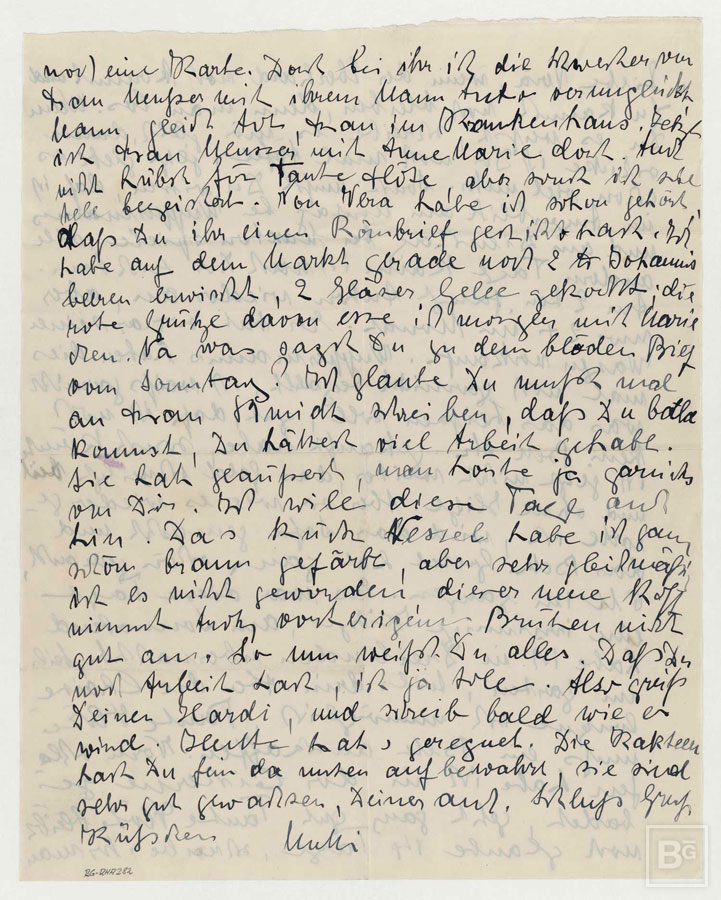 noch eine Karte. Dort bei ihr ist die Schwester von
Frau Meusser mit ihrem Mann Auto verunglückt
Mann gleich tot, Frau im Krankenhaus. Jetzt
ist Frau Meusser mit Anne Marie dort. Auch
nicht hübsch für Tante Flöte, aber sonst ist sie
helle begeistert. Von Vera habe ich schon gehört,
daß Du ihr einen Rombrief geschickt hast. Ich
habe auf dem Markt gerade noch 2 Johannis
beeren erwischt, 2 Gläser Gelee gekocht, die
rote Grütze davon esse ich morgen mit Marie
chen. Na was sagst Du zu dem blöden Brief
vom Sonntag? Ich glaube Du mußt mal
an Frau Schmidt schreiben, daß Du bald
kommst, Du hättest viel Arbeit gehabt.
Sie hat geäußert, man hörte ja garnichts
von Dir. Ich will diese Tage auch
hin. Das Stück Nessel habe ich ganz
schön braun gefärbt, aber sehr gleichmäßig
ist es nicht geworden dieser neue Stoff
nimmt trotz vorherigem Brühen nicht
gut an. So nun weißt Du alles. Daß Du
noch Arbeit hast, ist ja toll. Also grüß
Deinen Hardi, und schreib bald wie es
wird. Heute hat's geregnet. Die Kakteen
hast Du fein da unten aufbewahrt, sie sind
sehr gut gewachsen, Deiner auch. Schluß Gruß
Küßchen Mutti
RG-RHA282
BG